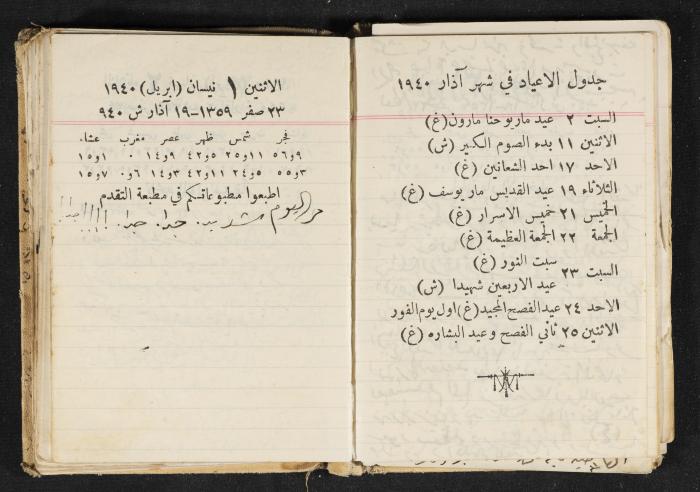 جدول الاعياد في شهر آذار ١٩٤٠
السبت ٢ عيد مار يوحنا مارون (غ)
الاثنين ١١ بدء الصوم الكبير (ش)
الاحد ١٧ احد الشعانين (غ)
الثلاثاء ١٩ عيد القديس مار يوسف (غ)
الخميس ٢١ خميس الاسرار (غ)
الجمعة ٢٢ الجمعة العظيمة (غ)
السبت ٢٣ سبت النور (غ)
عيد الاربعين شهيدا (ش)
الاحد ٢٤ عيد الفصح المجيد (غ) اول يوم الفور
الاثنين ٢٥ ثاني الفصح وعيد البشاره (غ)
الاثنين ١ نيسان (ابريل) ١٩٤٠
٢٣ صفر ١٣٥٩-١٩ آذار ش ٩٤٠
فجر شمس ظهر عصر مغرب عشاء
٥٦و٩ ٢٥و١١ ٤٢و٥ ١٤و٩ ٠ ١٥و١
٥٥و٣ ٢٤و٥ ٤٢و١١ ١٤و٣ ٠و٦ ١٥و٧
اطبعوا مطبوعاتكم في مطبعة التقدم
حر اليوم شديد. جدا. جدا. !!!!!